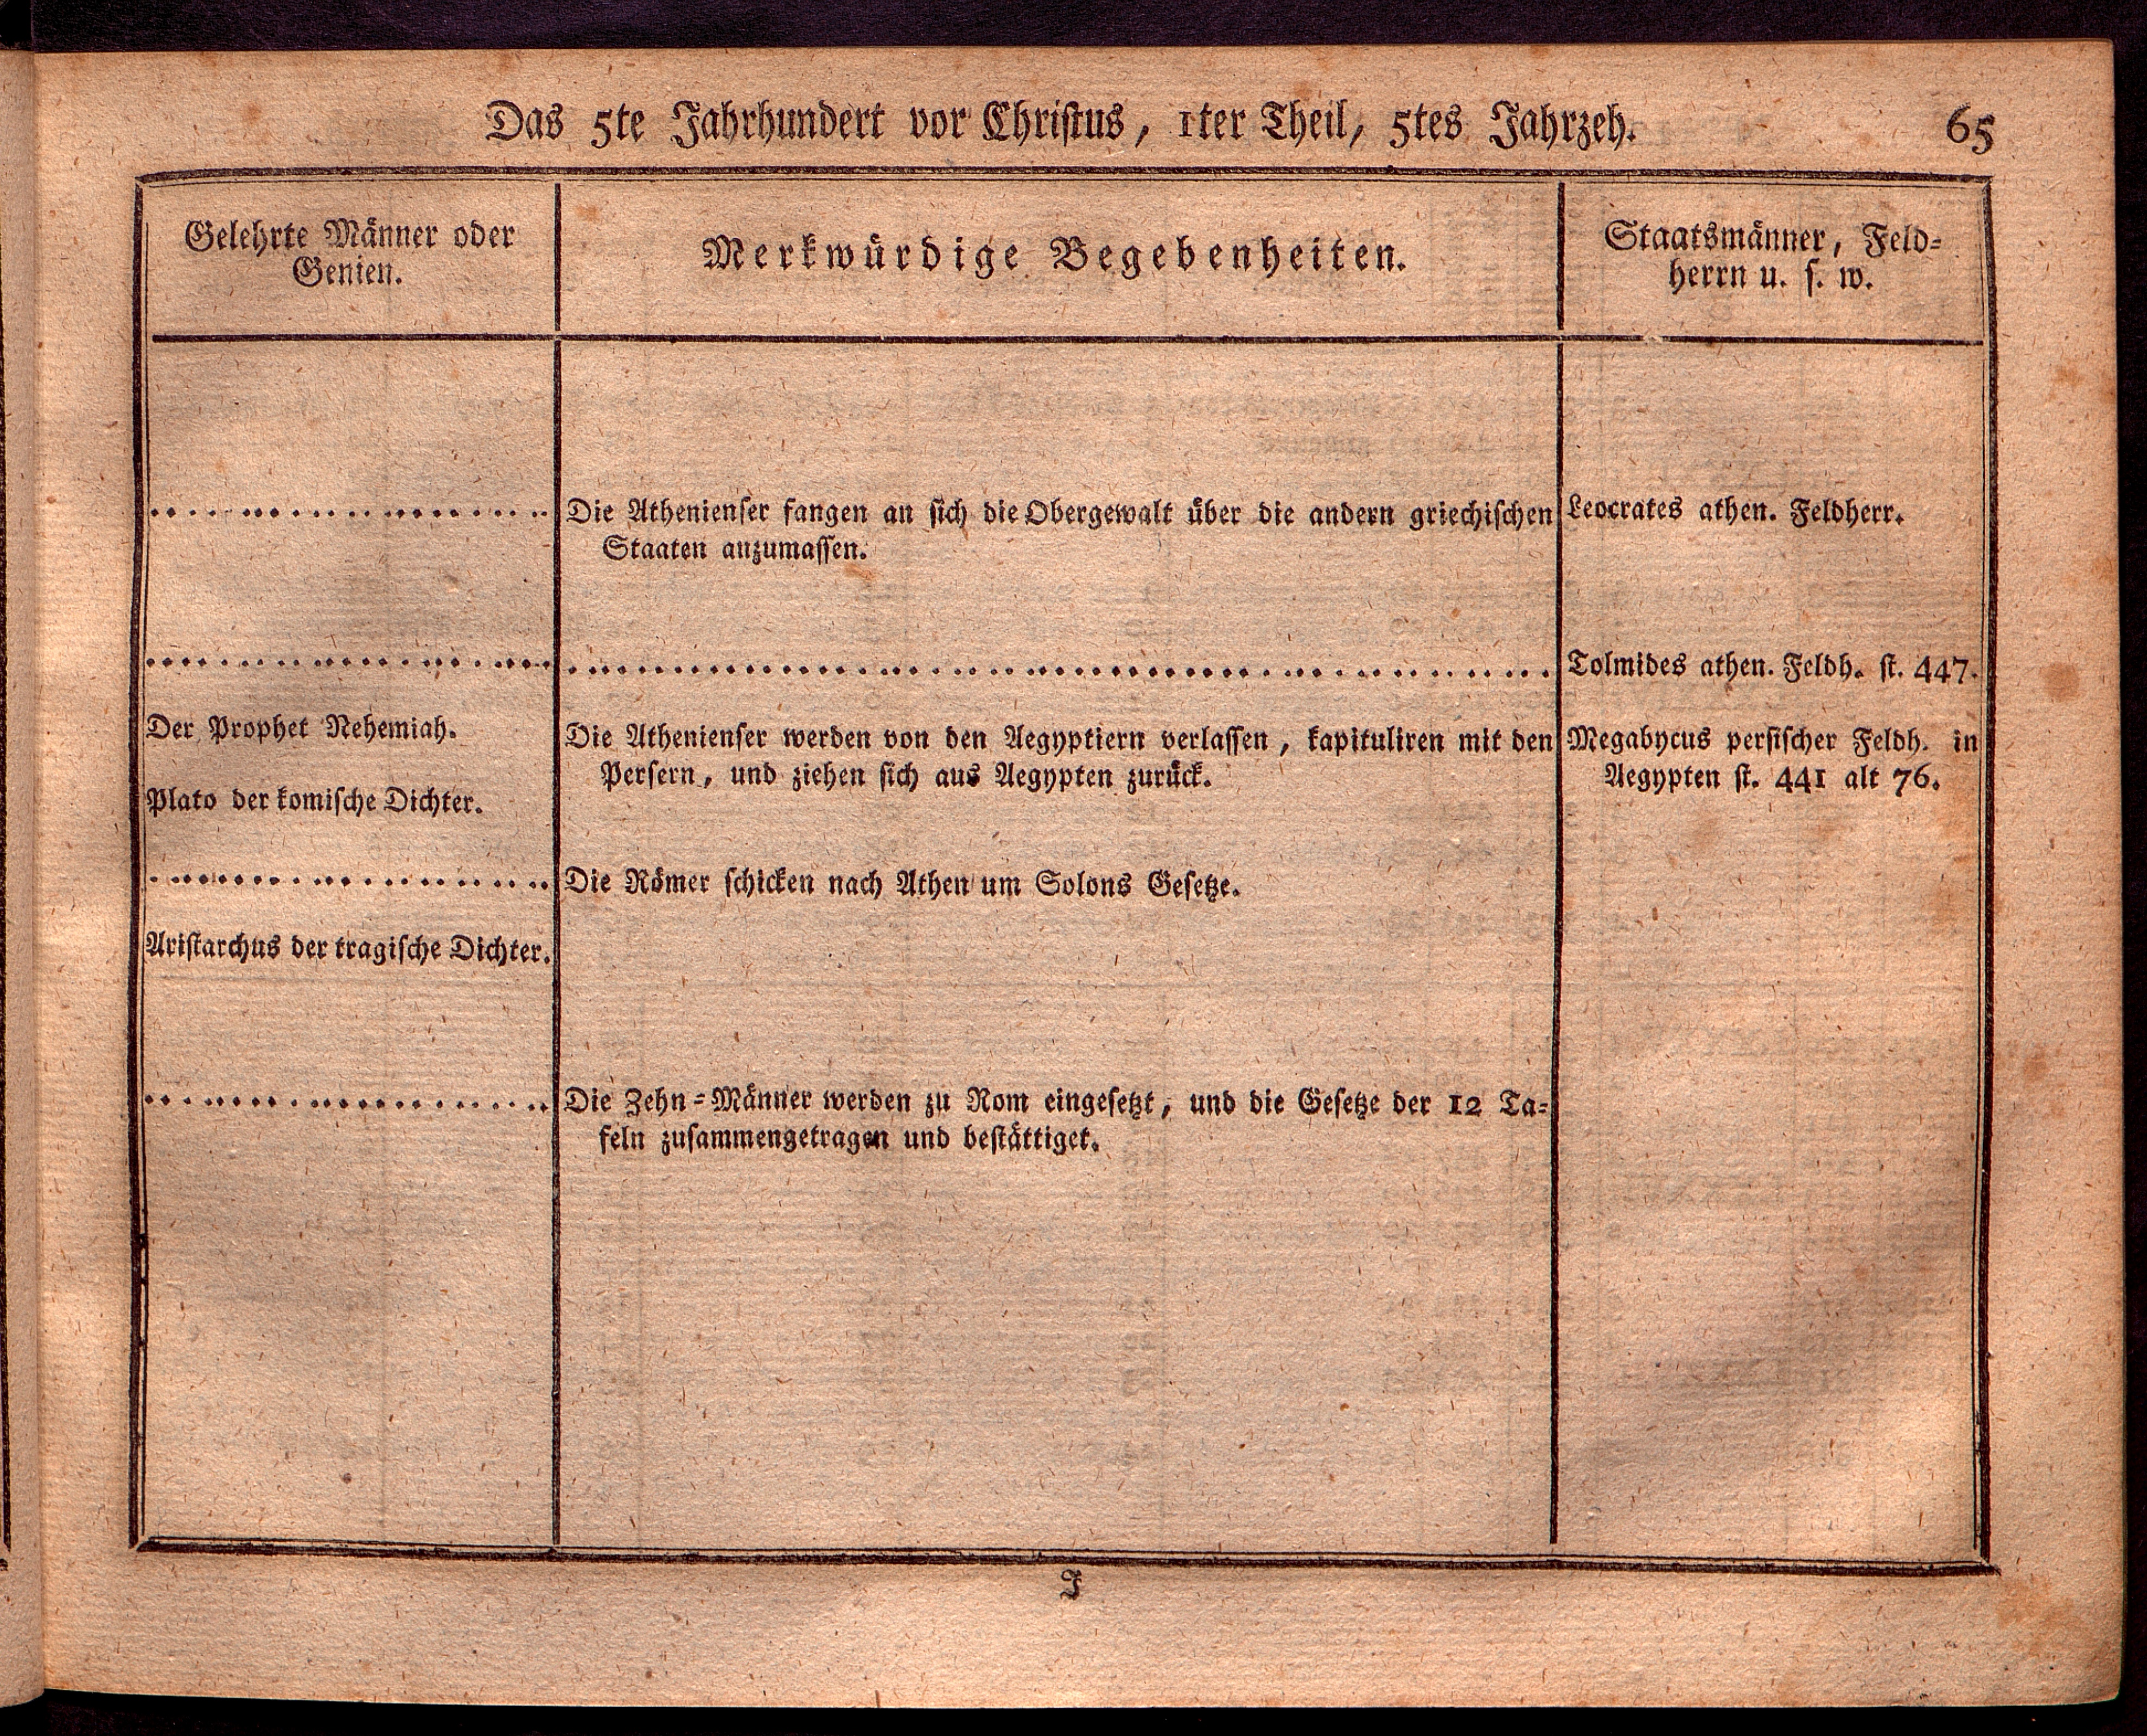 Das 5te Jahrhundert vor Christus, 1ter Theil, 5tes Jahrzeh.
65
Gelehrte Männer oder
Genien.
Merkwürdige Begebenheiten.
Staatsmänner, Feld-
herrn u. s. w.
Die Athenienser fangen an sich die Obergewalt über die andern griechischen
Staaten anzumassen.
Leocrates athen. Feldherr.
Tolmides athen. Feldh. st. 447.
Der Prophet Nehemiah.
Plato der komische Dichter.
Die Athenienser werden von den Aegyptiern verlassen, kapituliren mit den
Persern, und ziehen sich aus Aegypten zurück.
Megabycus persischer Feldh. in
Aegypten st. 441 alt 76.
Die Römer schicken nach Athen um Solons Gesetze.
Aristarchus der tragische Dichter.
Die Zehn-Männer werden zu Rom eingesetzt, und die Gesetze der 12 Ta-
feln zusammengetragen und bestättiget.
J